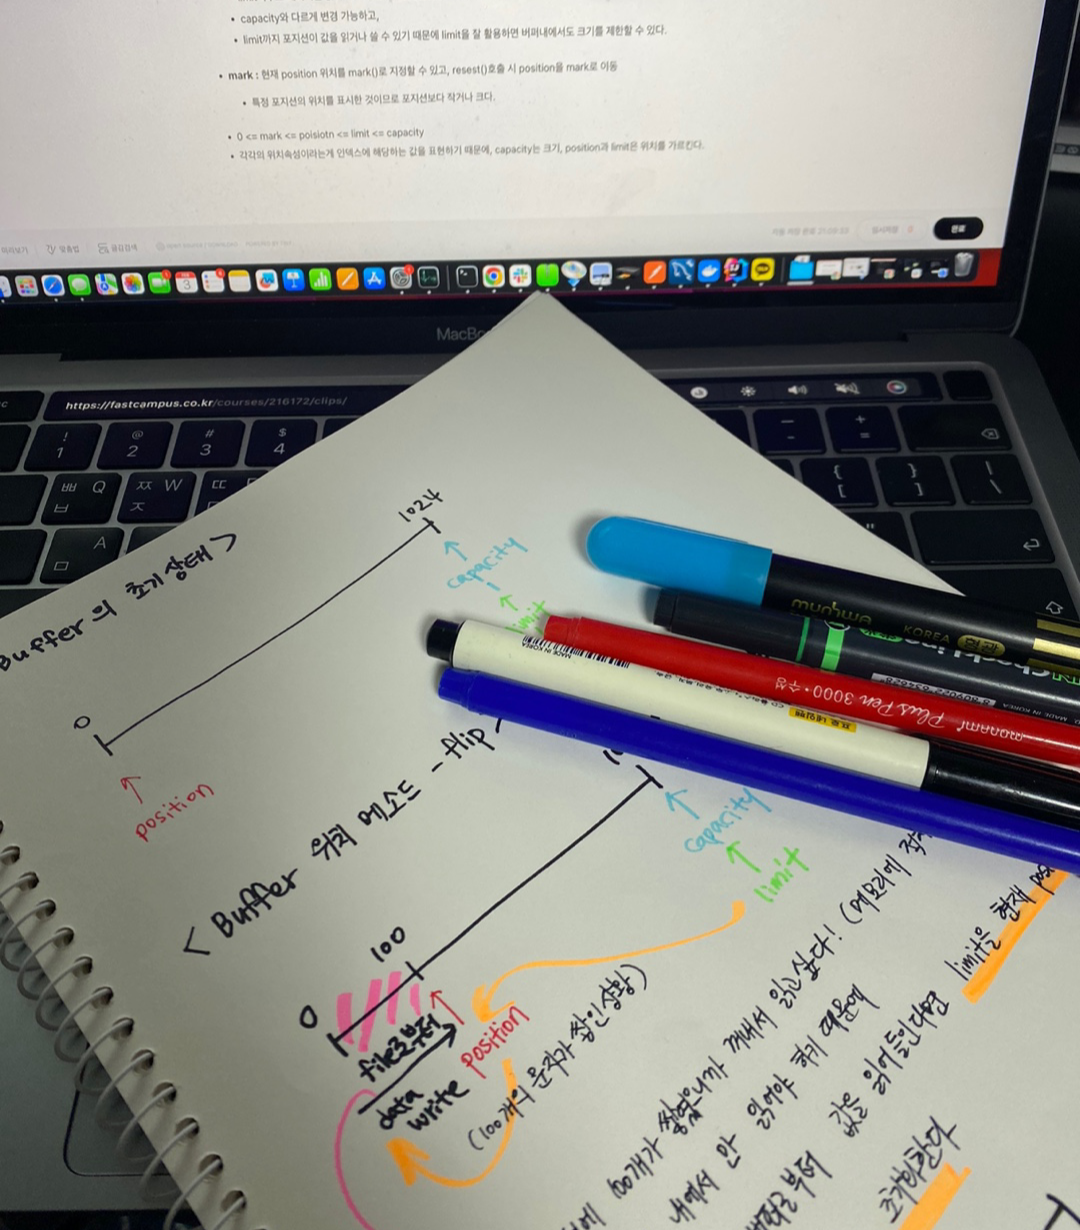 • capacity와 다르게 변경 가능하고,
• limit까지 포지션이 값을 읽거나 쓸 수 있기 때문에 limit을 잘 활용하면 버퍼내에서도 크기를 제한할 수 있다.
• mark : 현재 position 위치를 mark()로 지정할 수 있고, resest()호출 시 position을 mark로 이동
• 특정 포지션의 위치를 표시한 것이므로 포지션보다 작거나 크다.
• 0 <= mark <= poisiotn <= limit <= capacity
• 각각의 위치속성이라는게 인덱스에 해당하는 값을 표현하기 때문에, capacity는 크기, position과 limit은 위치를 가르킨다.
맞춤법
글감검색
완료
MacBo
https://fastcampus.co.kr/courses/216172/clips/
! @ # $
1 2 3 4
ㅃ Q ㅉ W ㄸ
ㅂ ㅈ
A
ㅁ
- +
- =
{ } |
[ ] \
Buffer의 초기상태 >
1024
capacity
limit
0
position
monami Plus Pen 3000 • 수성
KOREA
MADE IN KOREA
< Buffer 위치 메소드 - flip
capacity
limit
100
0
file로부터
data
write
position
(100개의 문자가 쌓인 상황)
100개가 쌓였으니까 꺼내서 읽고싶다! (메모리에
내에서 만 읽어야 하기 때문에
값을 읽어 들인다면 limit을 현재
초기화한다